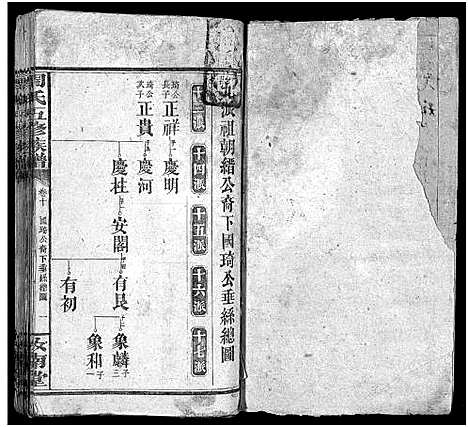 派祖朝縉公裔下國琦公垂絲總圖
十三派
十四派
十五派
十六派
十七派
琦公長子
正祥
慶明
琦公次子
正貴
慶河
慶柱
安閣
有良
象麟
子三
象和
子一
有初
周氏五修族譜
卷十
國琦公裔下垂絲總圖
一
汝南堂